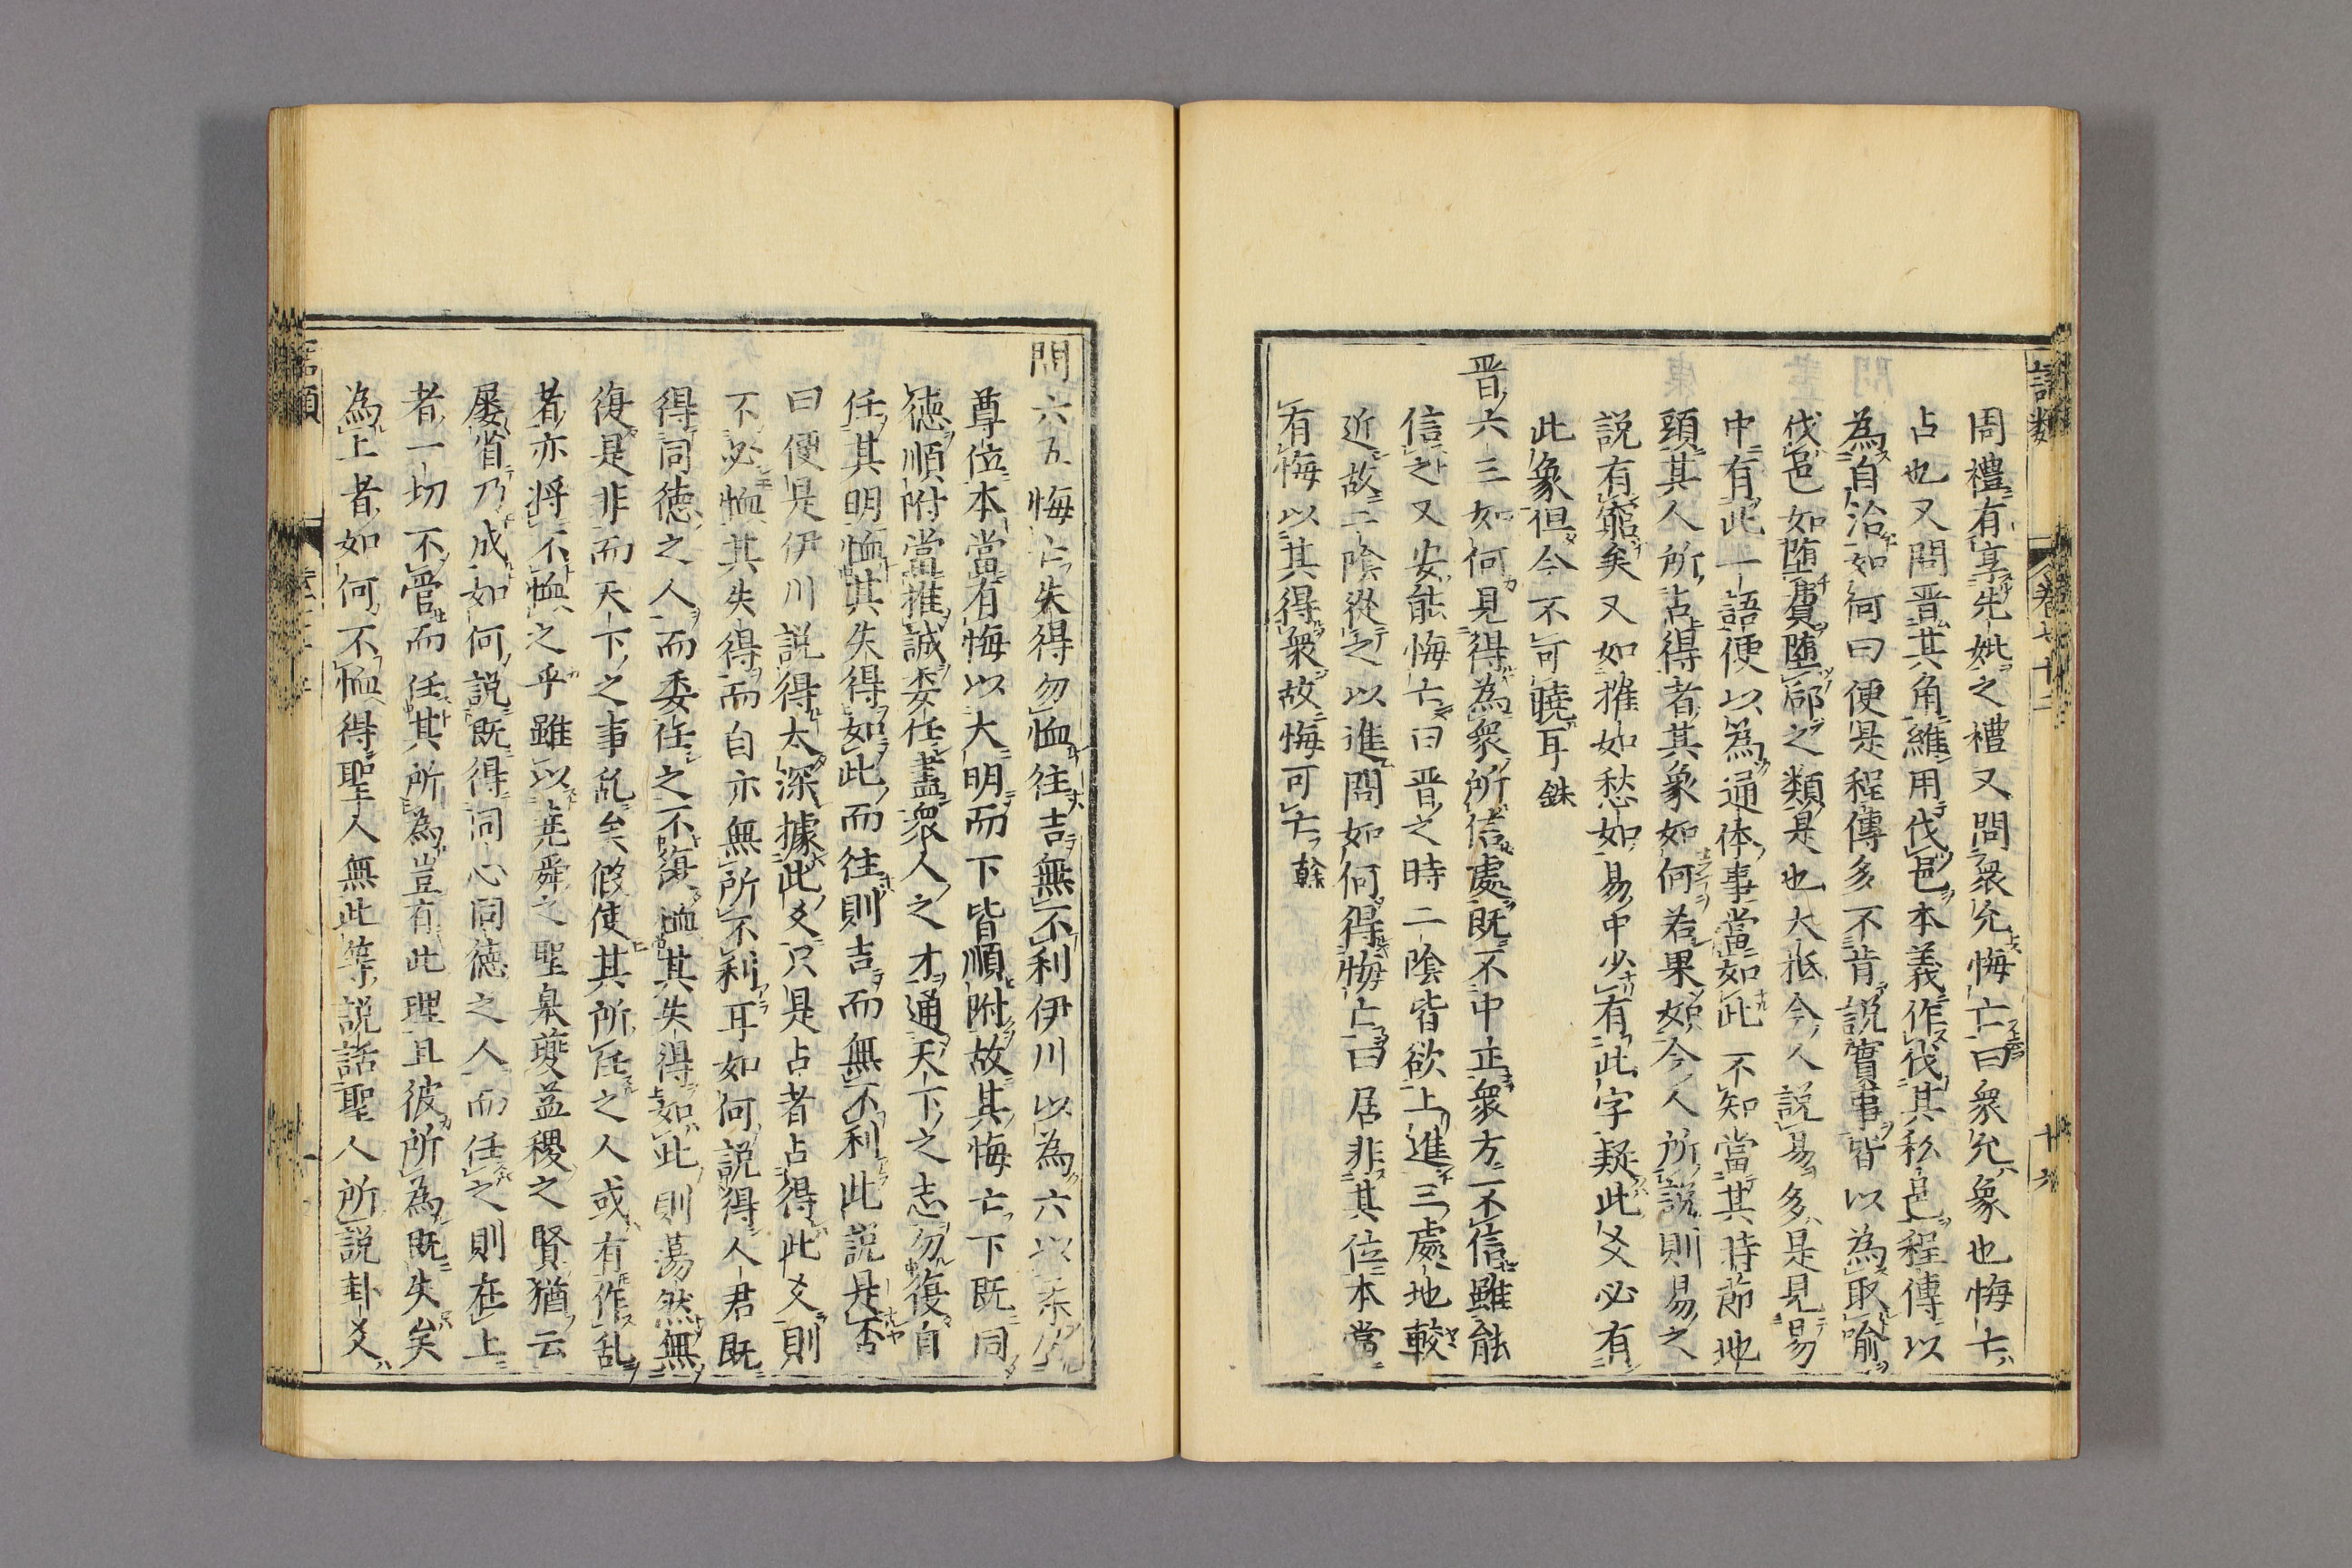 語類 卷七十二 十六
周禮有享先妣之禮又問衆允悔亡曰衆允象也悔亡
占也又問晋其角維用伐邑本義作伐其私邑程傳以
為自治如何曰便是程傳多不肯說實事皆以為取喻
伐邑如墮費墮郈之類是也大抵今人說易多是見易
中有此一語便以為通体事當如此不知當其時節地
頭其人所占得者其象如何若果如今人所說則易之
說有窮矣又如摧如愁如易中少有此字疑此爻必有
此象但今不可曉耳銖
晋六三如何見得為衆所信處既不中正衆方不信雖能
信之又安能悔亡曰晋之時二陰皆欲上進三處地較
近故二陰從之以進問如何得悔亡曰居非其位本當
有悔以其得衆故悔可亡 榦
問六五悔亡失得勿恤往吉無不利伊川以為六以柔居
尊位本當有悔以大明而下皆順附故其悔亡下既同
德順附當推誠委任盡衆人之才通天下之志勿復自
任其明恤其失得如此而往則吉而無不利此說是否
曰便是伊川說得太深據此爻只是占者占得此爻則
不必恤其失得而自亦無所不利耳如何說得人君既
得同德之人而委任之不復恤其失得如此則蕩然無
復是非而天下之事乱矣假使其所任之人或有作乱
者亦將不恤之乎雖以堯舜之聖臯夔益稷之賢猶云
屡省乃成如何說既得同心同德之人而任之則在上
者一切不管而任其所為豈有此理且彼所為既失矣
為上者如何不恤得聖人無此等說話聖人所說卦爻